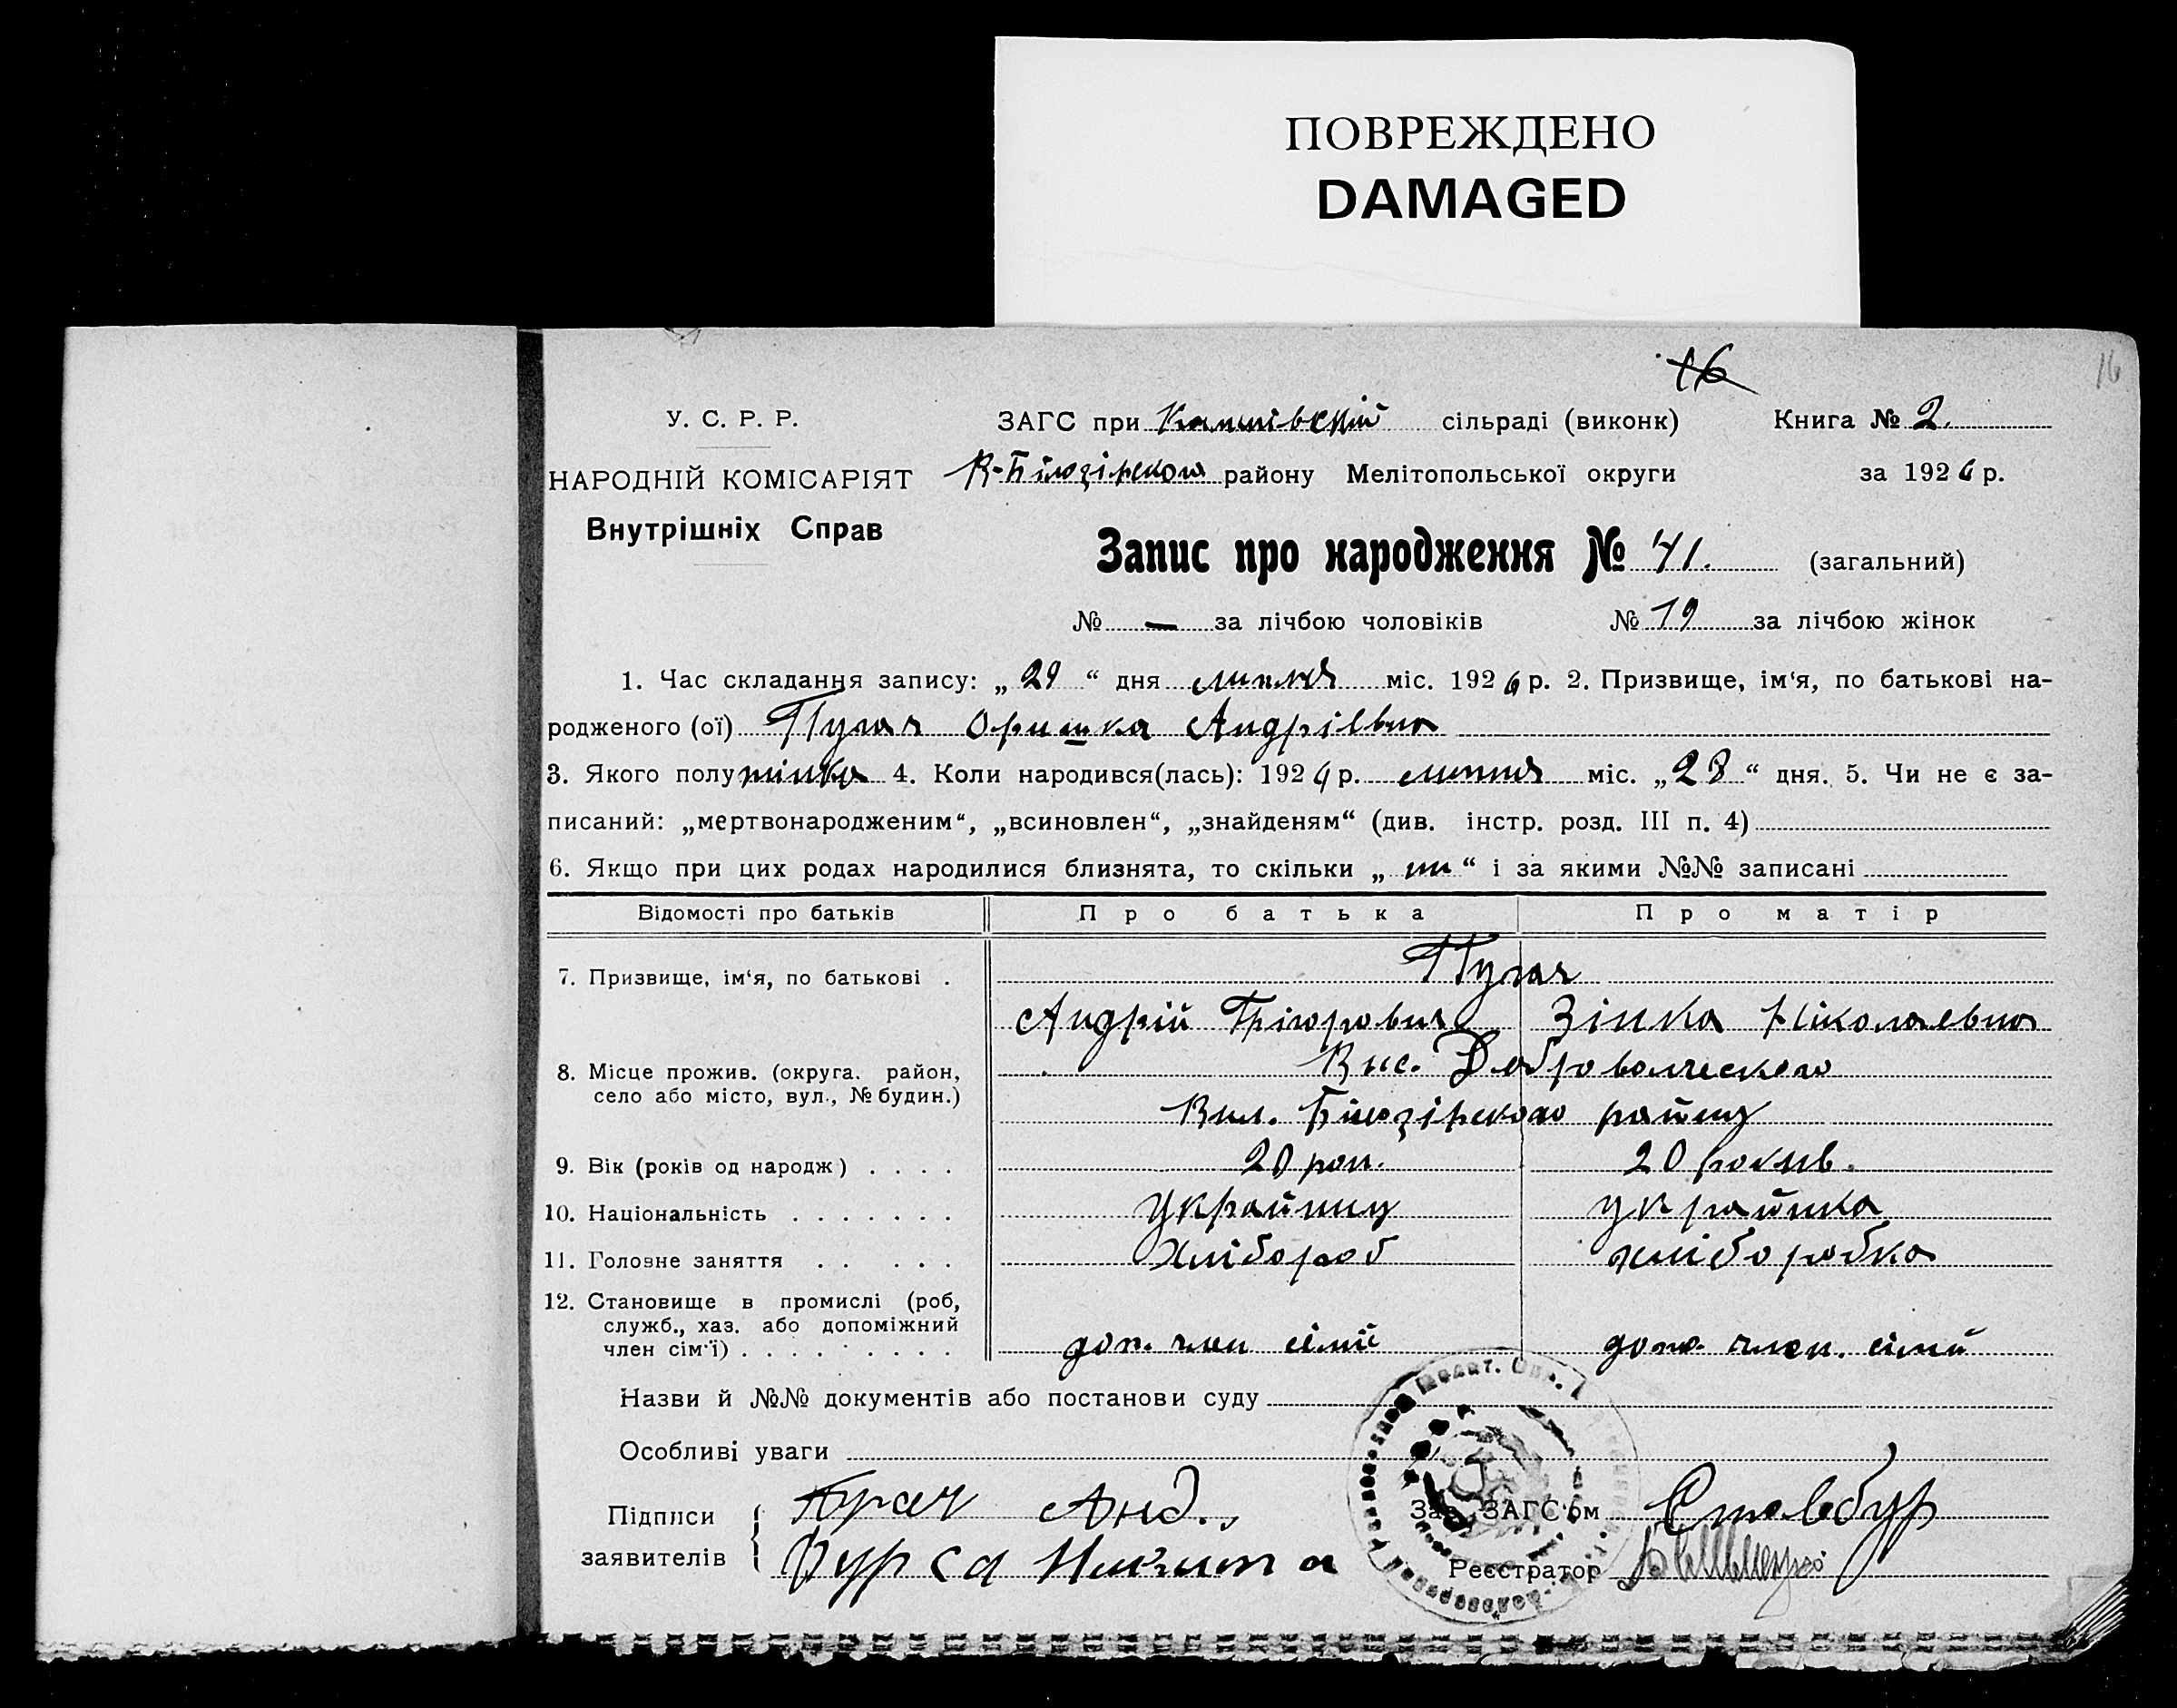 ПОВРЕЖДЕНО
DAMAGED
16
16
У. С. Р. Р.
ЗАГС при сільраді (виконк) Книга № 2.
НАРОДНІЙ КОМІСАРІЯТ В-Білозірского району Мелітопольської округи за 1926 р.
Внутрішніх Справ
Запис про народження № 41. (загальний)
№ — за лічбою чоловіків № 19 за лічбою жінок
1. Час складання запису: „29“ дня липня міс. 1926 р. 2. Призвище, ім‘я, по батькові на-
родженого (ої) Пугач Оришка Андрієвна
3. Якого полу жінка 4. Коли народився(лась): 1926 р. липня міс. „28“ дня. 5. Чи не є за-
писаний: „мертвонародженим“, „всиновлен“, „знайденям“ (див. інстр. розд. III п. 4)
6. Якщо при цих родах народилися близнята, то скільки „ни“ і за якими №№ записані
Відомості про батьків Про батька Про матір
7. Призвище, ім‘я, по батькові . Пугач
Андрій Грігорович Зінка Ніколаевна
8. Місце прожив. (округа. район, Вис. Добровольческого
село або місто, вул., № будин.) Вил. Білозірского району
9. Вік (років од народж) . . . . 20 рок. 20 років.
10. Національність . . . . . . . Українец українка
11. Головне заняття . . . . . Хлібороб хліборобка
12. Становище в промислі (роб,
служб., хаз. або допоміжний
член сім‘ї) . . . . . . . . . доп. член сімії доп. член. сімії
Назви й №№ документів або постанови суду
Особливі уваги
Підписи Пугач Анд. Зав. ЗАГС‘ом Стовбур
заявителів Бурса Никита Реєстратор